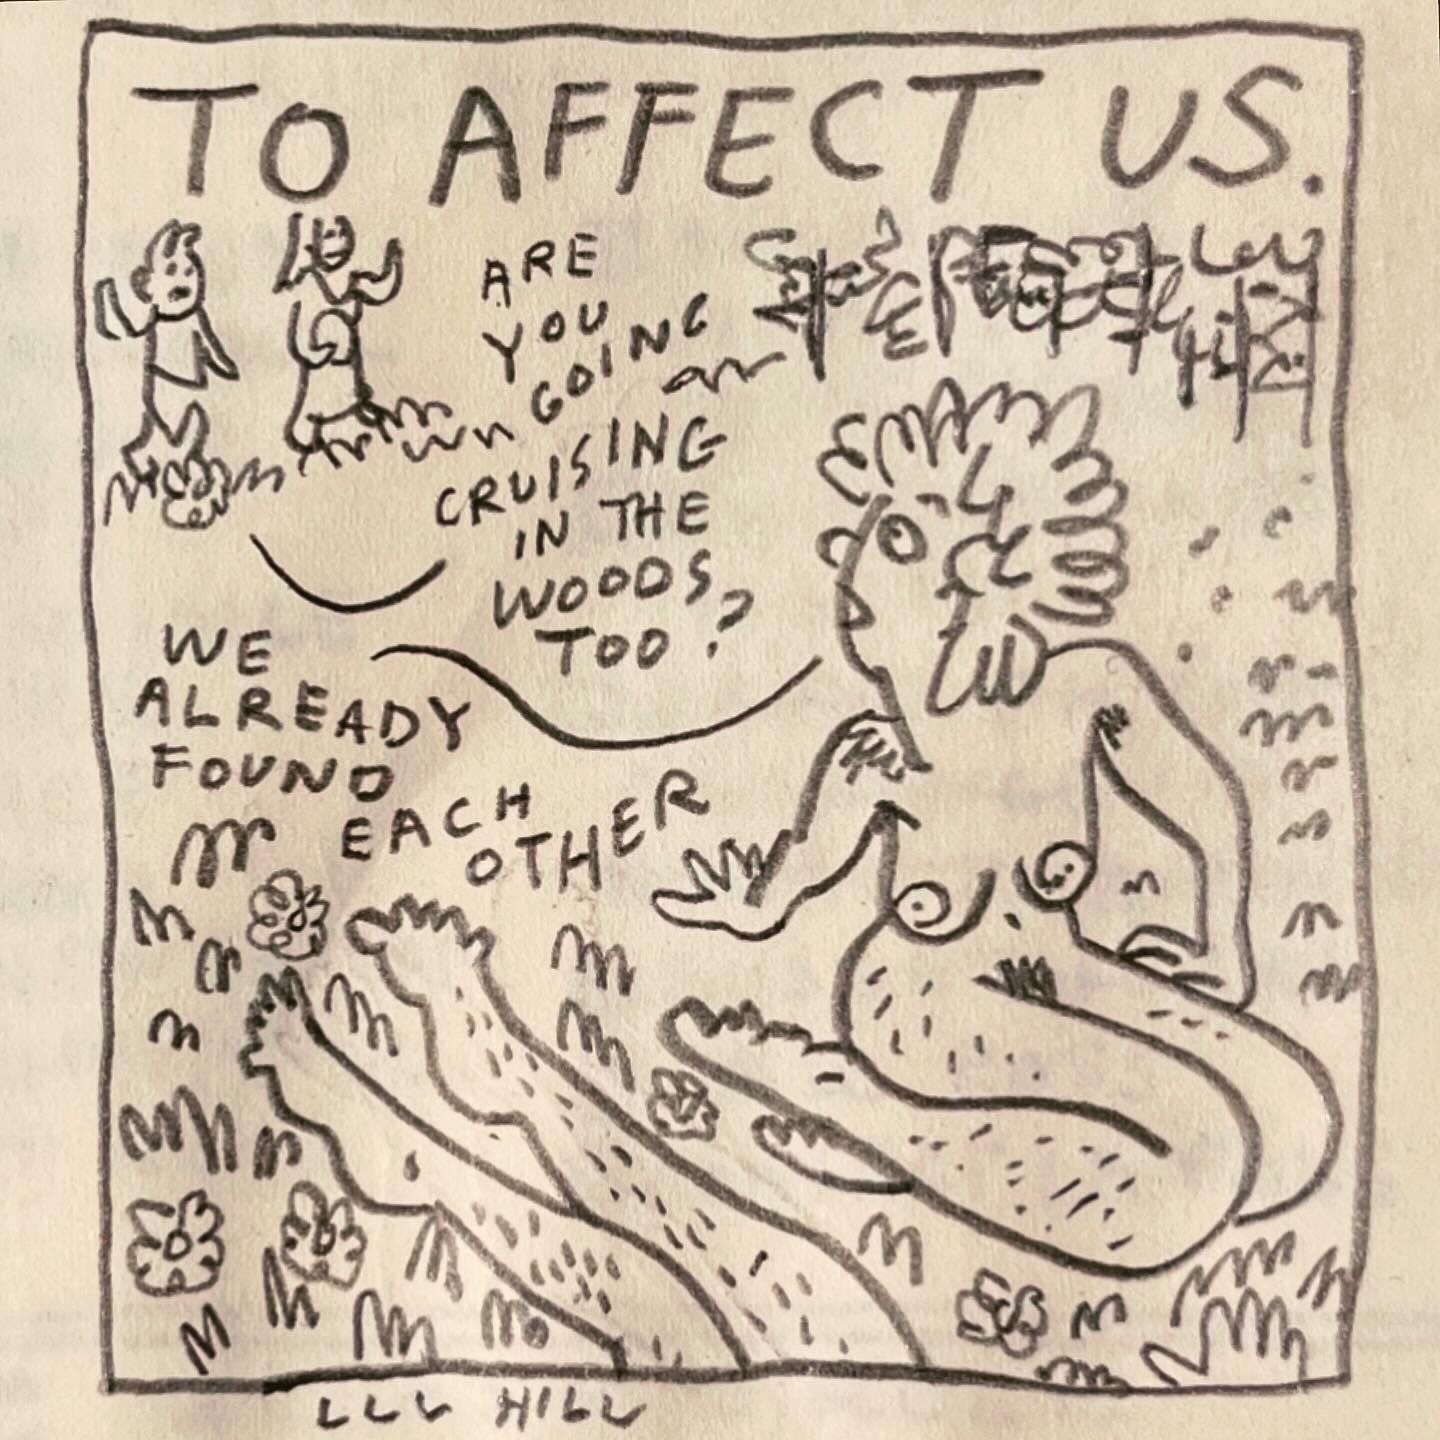 TO AFFECT US.
ARE
YOU
GOING
CRUISING
IN THE
WOODS
TOO?
WE
ALREADY
FOUND
EACH
OTHER
LLL HILL